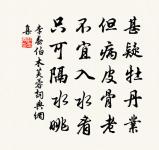 甚疑牡丹業
但病皮骨老
不宜入水看
只可隔水眺
李泰伯木芙蓉詞典網